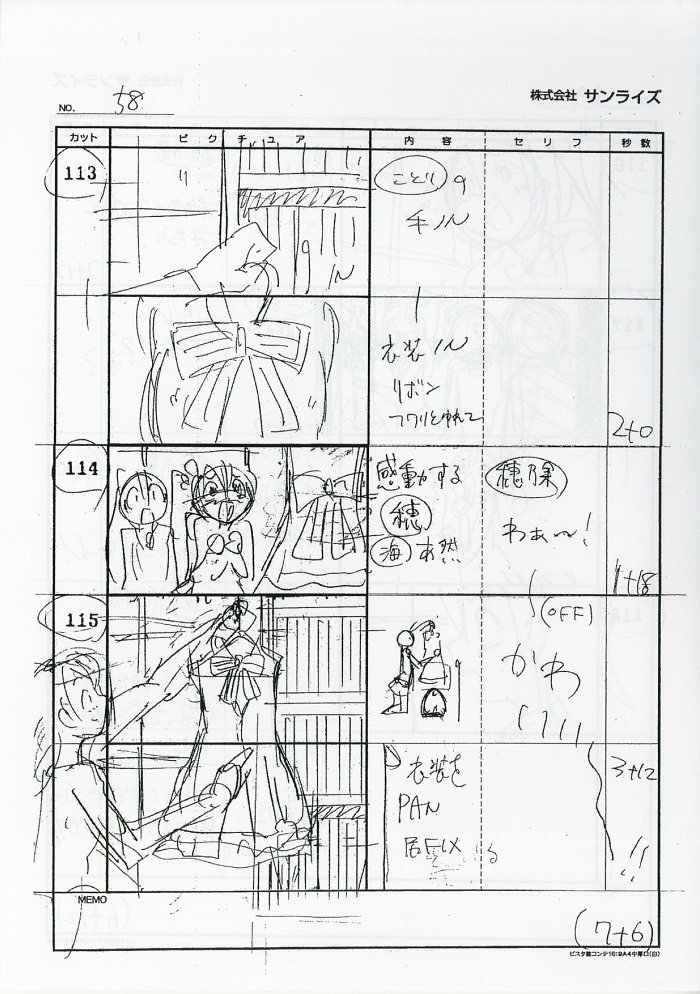 NO. 58
株式会社 サンライズ
カット ピクチュア 内容 セリフ 秒数
113
ことり の
手 IN
IN
衣装 IN
リボン
フワリとゆれて
2+0
114
感動する
穂
海 あ然
穂乃果
わぁ〜!
1+18
115
(OFF)
かわ
いいい
衣装を
PAN
3+12
!!
MEMO
(7+6)
ビスタ絵コンテ16:9A4中厚口(白)